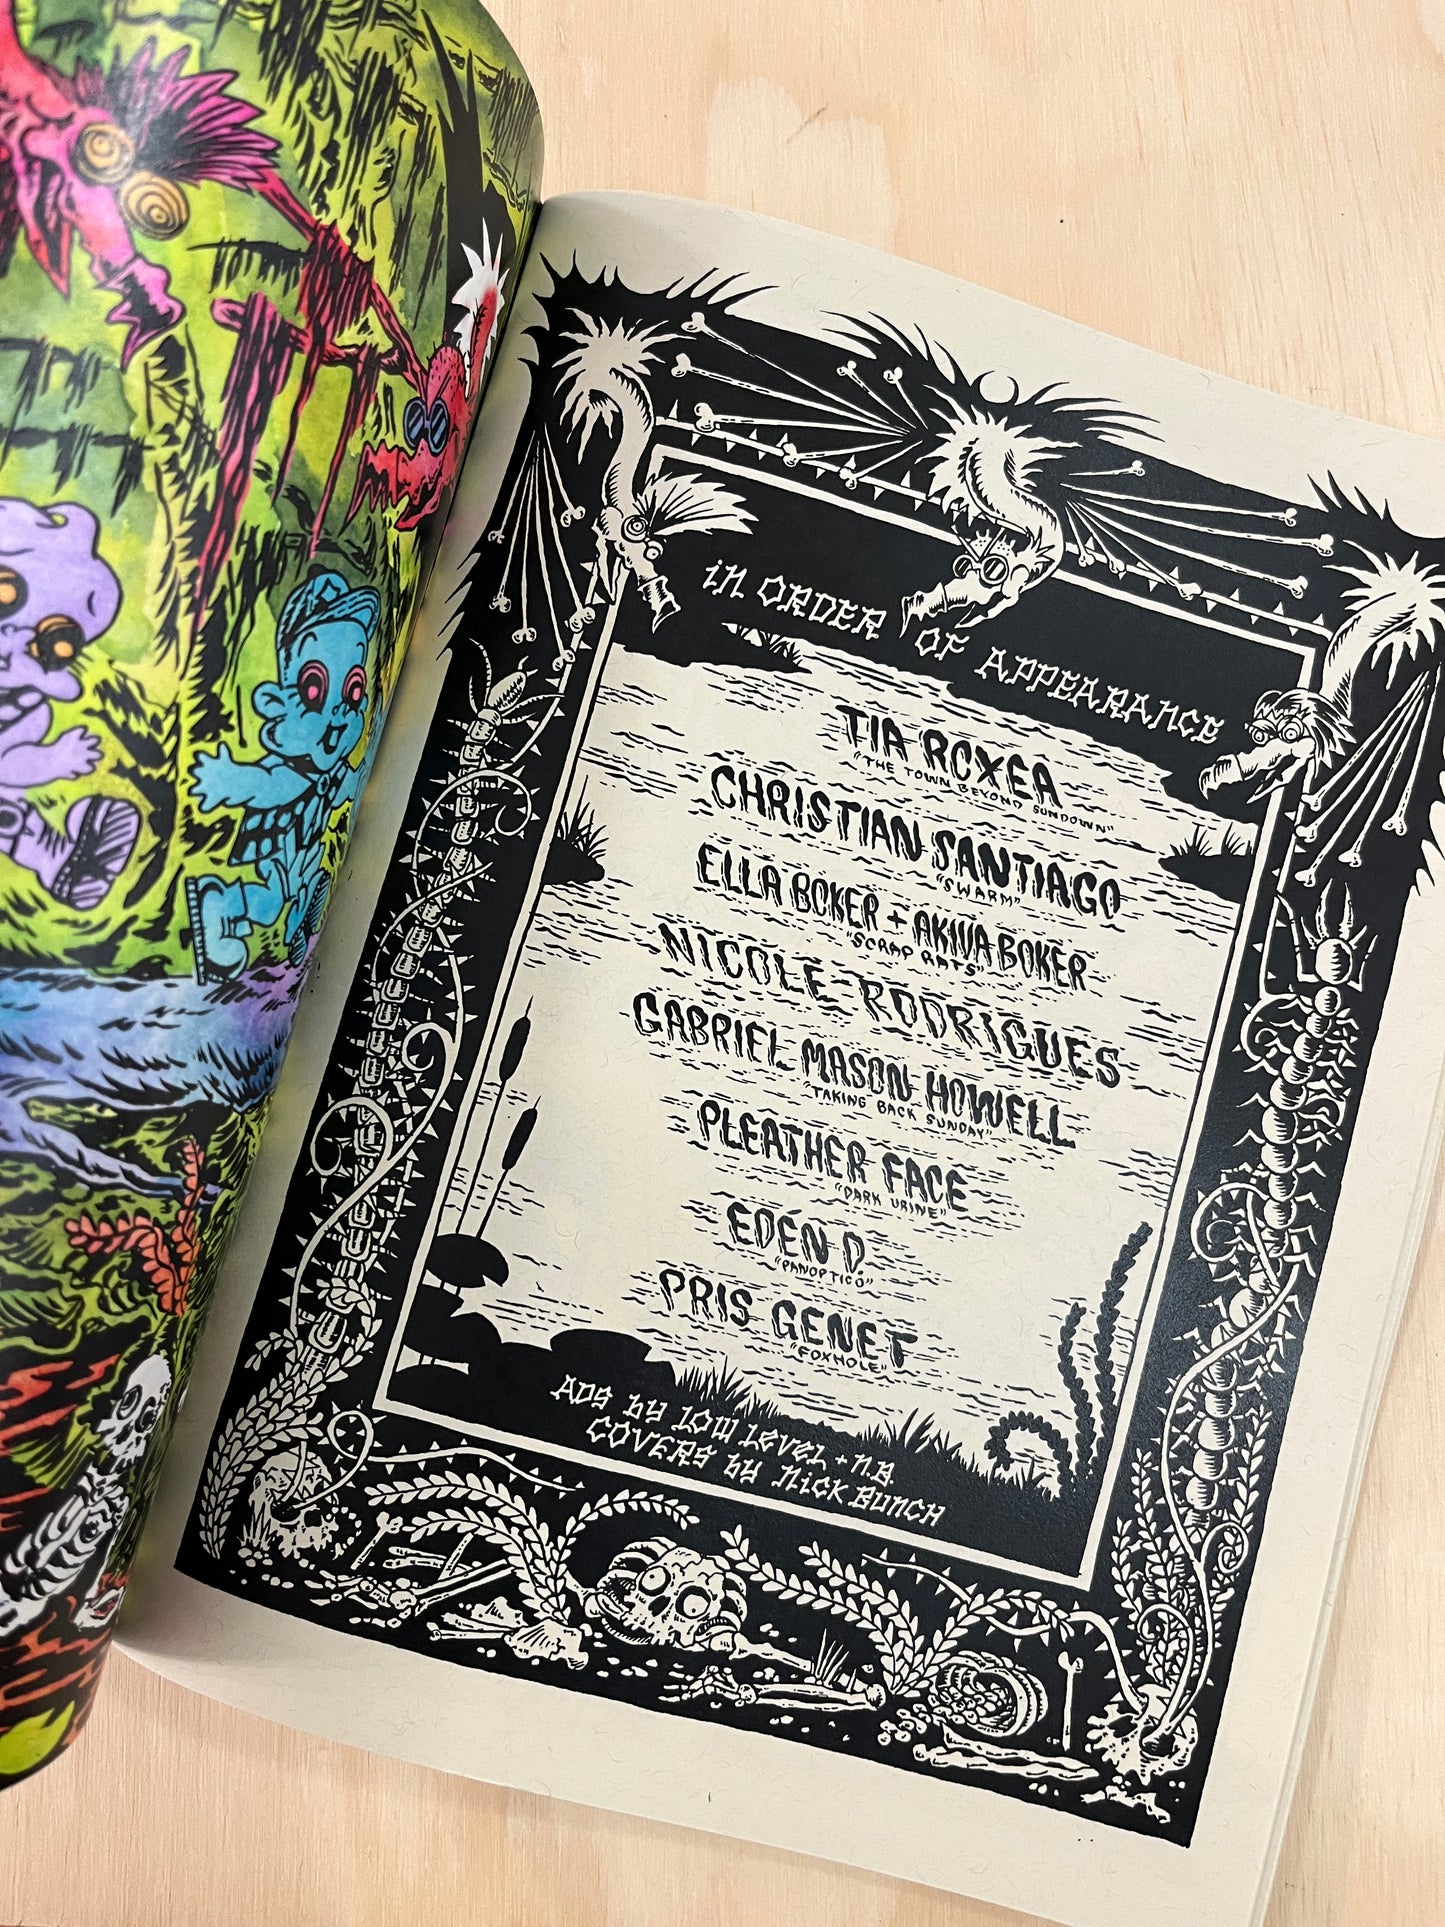 in ORDER OF APPEARANCE
TIA ROXEA
"THE TOWN BEYOND SUNDOWN"
CHRISTIAN SANTIAGO
"SWARM"
ELLA BOKER + AKIVA BOKER
"SCRAP RATS"
NICOLE RODRIGUES
GABRIEL MASON HOWELL
"TAKING BACK SUNDAY"
PLEATHER FACE
"DARK URINE"
EDÉN D.
"PANOPTICO"
PRIS GENET
"FOXHOLE"
ADS by LOW LEVEL + N.B.
COVERS by NICK BUNCH